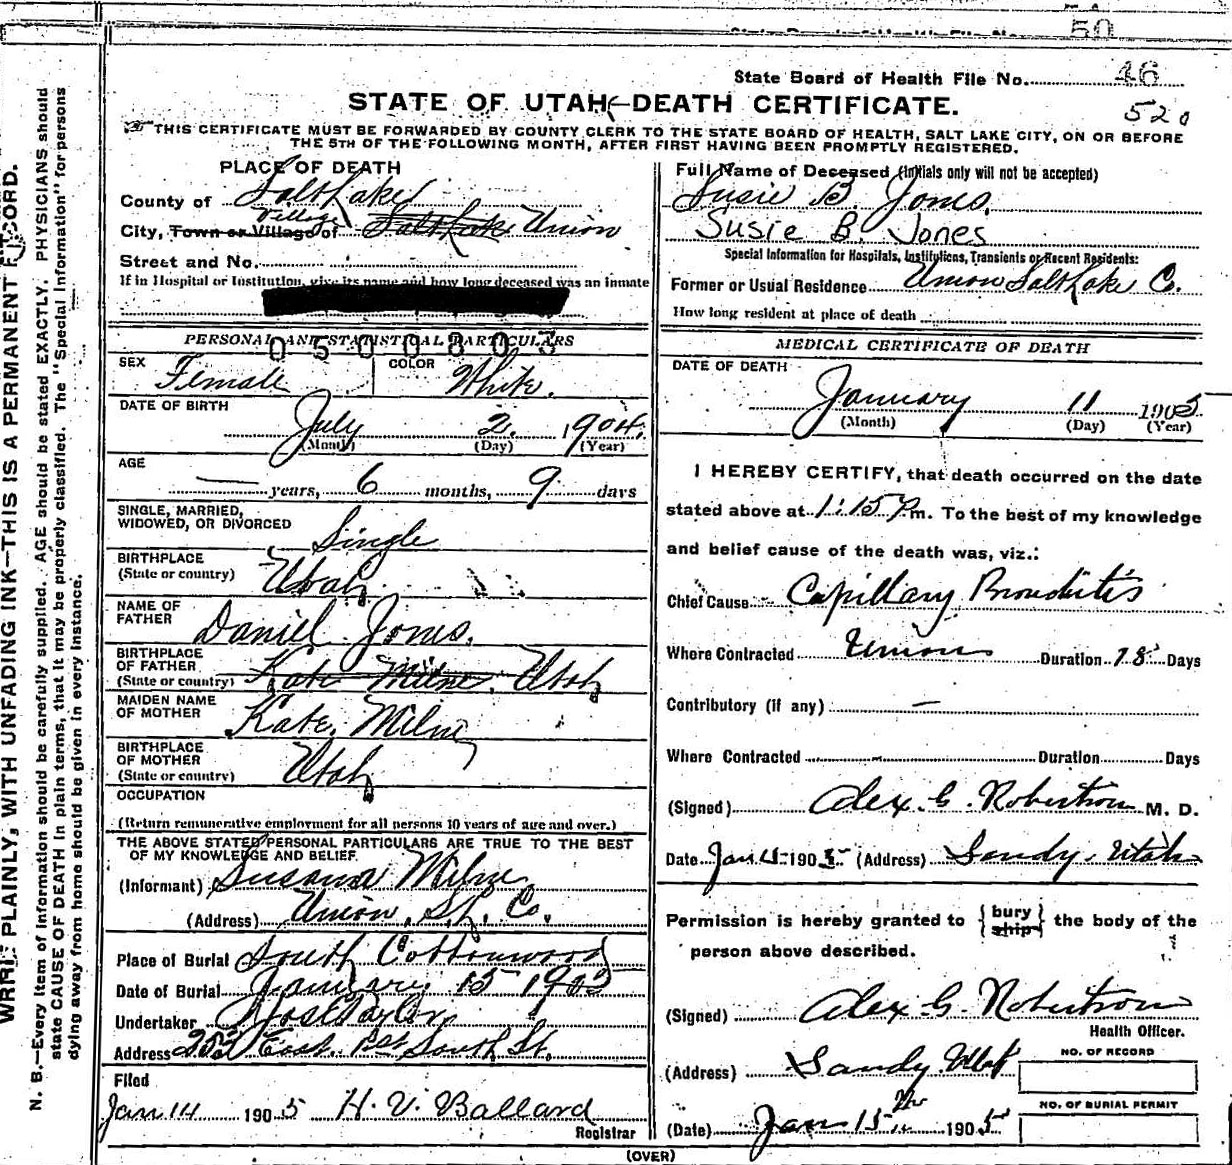 50
State Board of Health File No. 46
STATE OF UTAH—DEATH CERTIFICATE.
520
THIS CERTIFICATE MUST BE FORWARDED BY COUNTY CLERK TO THE STATE BOARD OF HEALTH, SALT LAKE CITY, ON OR BEFORE
THE 5TH OF THE FOLLOWING MONTH, AFTER FIRST HAVING BEEN PROMPTLY REGISTERED.
WRITE PLAINLY, WITH UNFADING INK—THIS IS A PERMANENT RECORD.
N. B.—Every item of information should be carefully supplied. AGE should be stated EXACTLY. PHYSICIANS should
state CAUSE OF DEATH in plain terms, that it may be properly classified. The "Special Information" for persons
dying away from home should be given in every instance.
PLACE OF DEATH
County of Salt Lake
Village
City, Town or Village of Salt Lake Union
Street and No.
If in Hospital or Institution, give its name and how long deceased was an inmate
PERSONAL AND STATISTICAL PARTICULARS
0500803
SEX Female COLOR White.
DATE OF BIRTH
July 2. 1904.
(Month) (Day) (Year)
AGE
— years, 6 months, 9 days
SINGLE, MARRIED,
WIDOWED, OR DIVORCED Single
BIRTHPLACE
(State or country) Utah
NAME OF
FATHER Daniel Jones.
BIRTHPLACE
OF FATHER
(State or country) Kate Milne. Utah
MAIDEN NAME
OF MOTHER Kate Milne
BIRTHPLACE
OF MOTHER
(State or country) Utah
OCCUPATION
(Return remunerative employment for all persons 10 years of age and over.)
THE ABOVE STATED PERSONAL PARTICULARS ARE TRUE TO THE BEST
OF MY KNOWLEDGE AND BELIEF.
(Informant) Susana Milne
(Address) Union, S.L. Co.
Place of Burial South Cottonwood
Date of Burial January 15 1905
Undertaker Jos E Taylor
Address 252 East 1st South St.
Filed
Jan 14 1905 H. V. Ballard
Registrar
Full Name of Deceased (Initials only will not be accepted)
Susie B. Jones.
Susie B. Jones
Special Information for Hospitals, Institutions, Transients or Recent Residents:
Former or Usual Residence Union Salt Lake Co.
How long resident at place of death
MEDICAL CERTIFICATE OF DEATH
DATE OF DEATH
January 11 1905
(Month) (Day) (Year)
I HEREBY CERTIFY, that death occurred on the date
stated above at 1:15 P.m. To the best of my knowledge
and belief cause of the death was, viz.:
Chief Cause Capillary Bronchitis
Where Contracted Union Duration 18 Days
Contributory (if any) —
Where Contracted Duration Days
(Signed) Alex. G. Robertson M. D.
Date Jan 1905 (Address) Sandy, Utah
Permission is hereby granted to {bury
ship} the body of the
person above described.
(Signed) Alex G. Robertson
Health Officer.
(Address) Sandy Utah
NO. OF RECORD
NO. OF BURIAL PERMIT
(Date) Jan 15th 1905
(OVER)